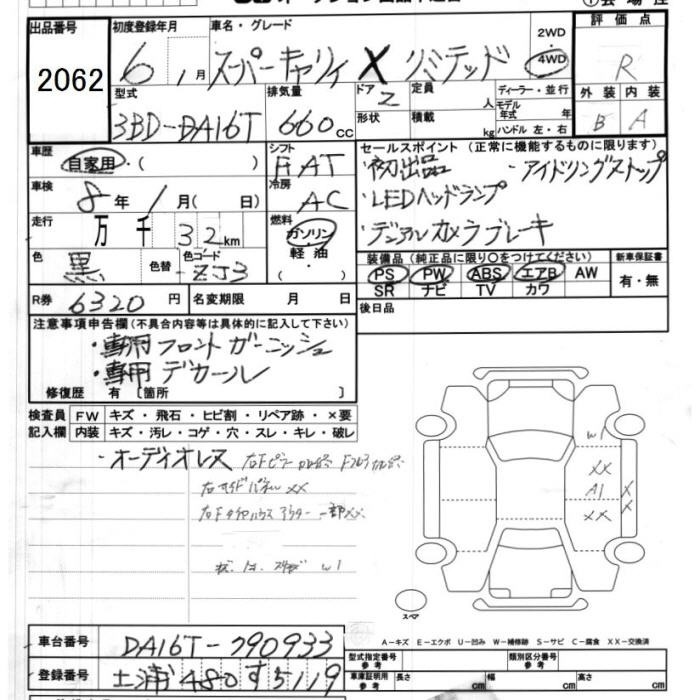 出品番号
初度登録年月
車名・グレード
評価点
2062
6 1月
スーパーキャリイ X リミテッド
2WD
4WD
R
型式
排気量
ドア
定員
ディーラー・並行
外装 内装
3BD-DA16T
660cc
2
人
モデル年式 年
形状
積載
kg
ハンドル 左・右
B A
車歴
自家用・( )
シフト
FAT
セールスポイント (正常に機能するものに限ります)
・初出品 ・アイドリングストップ
車検
8年 1月( 日)
冷房
AC
・LEDヘッドランプ
走行
万 千 32km
燃料
ガソリン・
軽油
・( )
・デュアルカメラブレーキ
色
黒
色替
色コード
ZJ3
装備品(純正品に限り○をつけてください)
新車保証書
PS PW ABS エアB AW
SR ナビ TV カワ
有・無
R券
6320円
名変期限 月 日
後日品
注意事項申告欄(不具合内容等は具体的に記入して下さい)
・専用フロントガーニッシュ
・専用デカール
修復歴 有 〔箇所 〕
検査員
記入欄
FW キズ・飛石・ヒビ割・リペア跡・×要
内装 キズ・汚レ・コゲ・穴・スレ・キレ・破レ
・オーディオレス
右サイドパネル XX
右Fタイヤハウス アウター 一部XX
W1
W1
XX
A1
XX
X
X
スペア
A-キズ E-エクボ U-凹み W-補修跡 S-サビ C-腐食 XX-交換済
車台番号
DA16T-790933
登録番号
土浦 480 す 5119
型式指定番号
参考
類別区分番号
参考
車庫証明用
参考
長さ cm
幅 cm
高さ cm